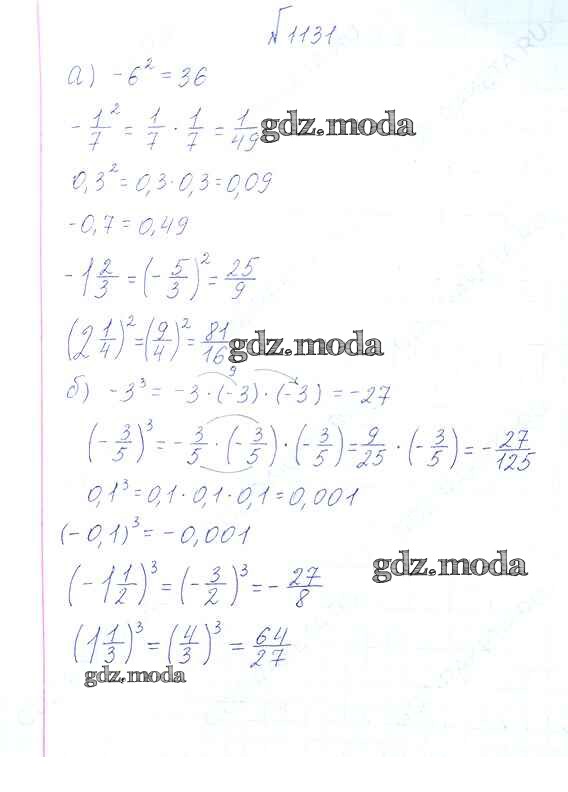 № 1131
а) -6² = 36
-1/7² = 1/7 · 1/7 = 1/49
gdz.moda
0,3² = 0,3·0,3 = 0,09
-0,7 = 0,49
-1 2/3 = (-5/3)² = 25/9
(2 1/4)² = (9/4)² = 81/16
gdz.moda
9
б) -3³ = -3 · (-3) · (-3) = -27
(-3/5)³ = -3/5 · (-3/5) · (-3/5) = 9/25 · (-3/5) = -27/125
0,1³ = 0,1 · 0,1 · 0,1 = 0,001
(-0,1)³ = -0,001
gdz.moda
(-1 1/2)³ = (-3/2)³ = -27/8
(1 1/3)³ = (4/3)³ = 64/27
gdz.moda